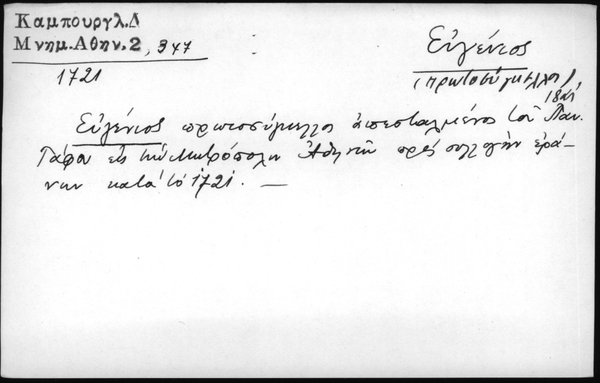 Καμπουργλ.Δ
Μνημ.Αθην.2, 347
1721
Εὐγένιος
(πρωτοσύγκελλος),
1821
Εὐγένιος πρωτοσύγκελλος ἀπεσταλμένος τοῦ Παν.
Τάφου εἰς τὴν Μητρόπολιν Ἀθηνῶν πρὸς συλλογὴν ἐρά-
νων κατὰ τὸ 1721. —